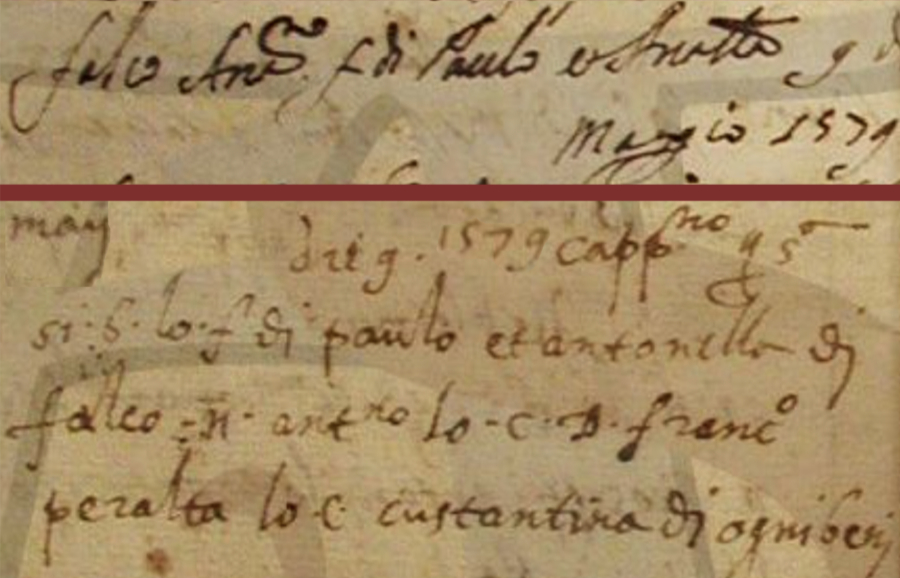 falco Ant.no f di Paulo et Antella g d
Maggio 1579
may
di i 9 . 1579 capp.no q s
si: b. lo. f. di paulo et antonella di
falco :N. ant.no lo. C. D. franc.o
peralta lo C custantina di ogniben